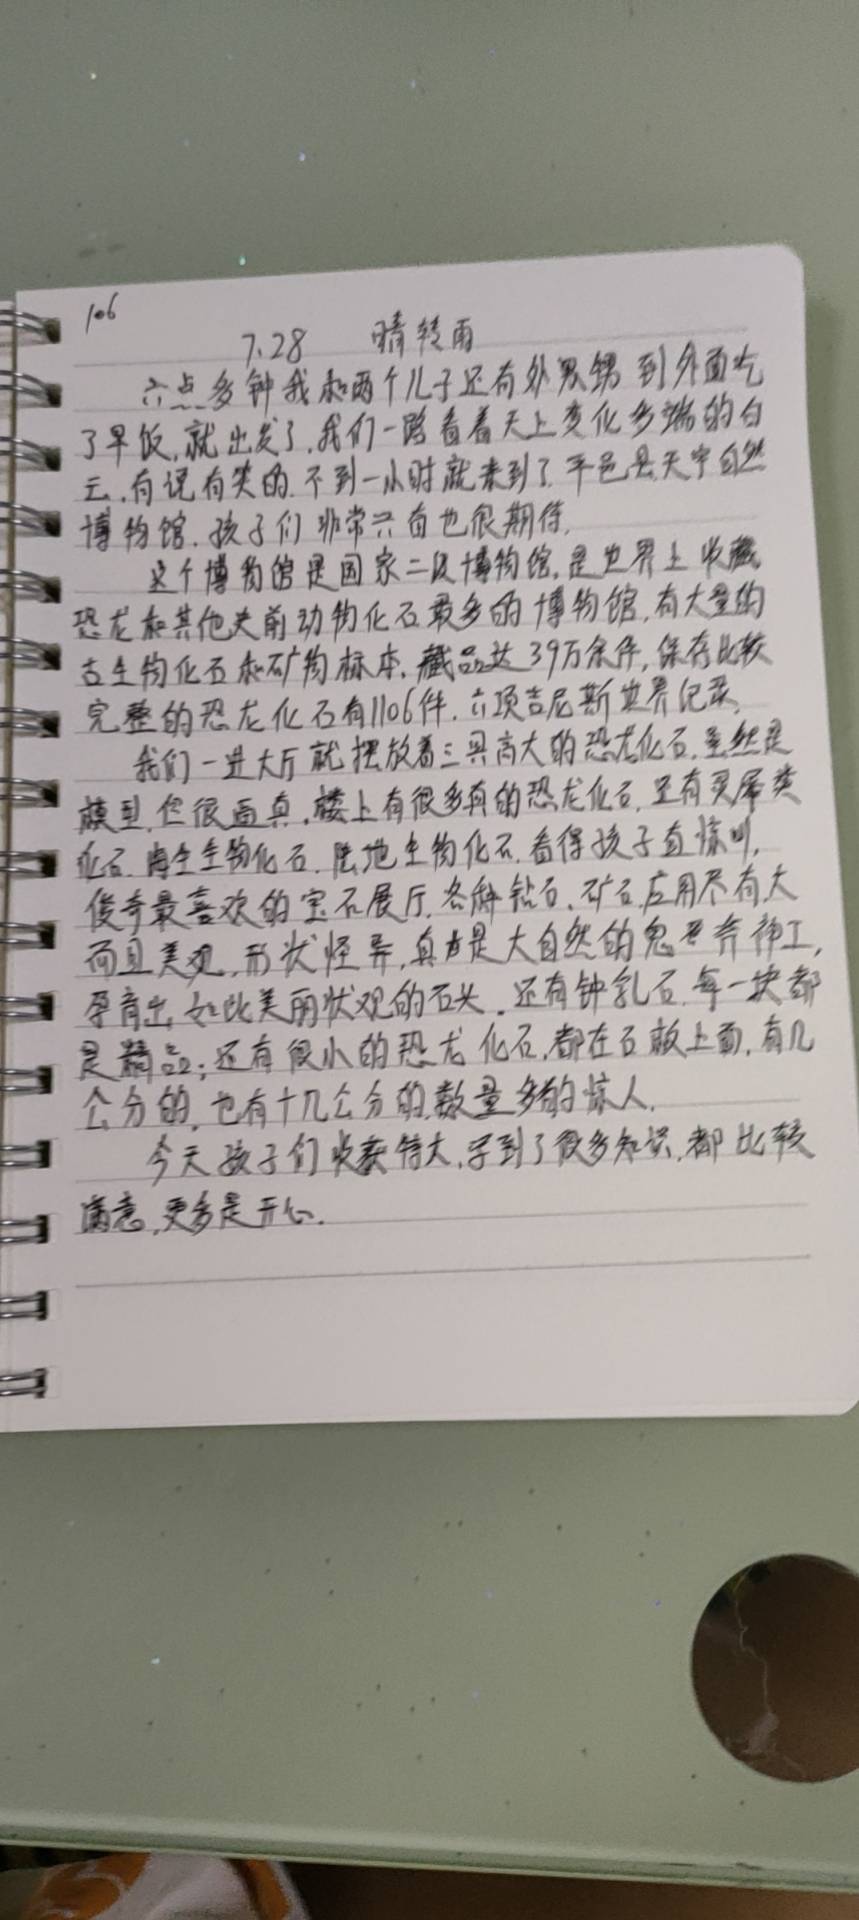 106
7.28 晴转雨
六点多钟我和两个儿子还有外男甥到外面吃
了早饭,就出发了,我们一路看着天上变化多端的白
云,有说有笑的.不到一小时就来到了.平邑县天宇自然
博物馆.孩子们非常兴奋也很期待.
这个博物馆是国家二级博物馆,是世界上收藏
恐龙和其他史前动物化石最多的博物馆,有大量的
古生物化石和矿物标本,藏品达39万余件,保存比较
完整的恐龙化石有1106件.六项吉尼斯世界纪录,
我们一进大厅就摆放着三具高大的恐龙化石,虽然是
模型,但很逼真,楼上有很多真的恐龙化石,还有灵犀类
化石,海生生物化石.陆地生物化石.看得孩子直惊叫,
俊奇最喜欢的宝石展厅.各种钻石、矿石,应用尽有,大
而且美观,形状怪异,真是大自然的鬼斧神工,
孕育出如此美丽状观的石头.还有钟乳石.每一块都
是精品;还有很小的恐龙化石,都在石板上面,有几
公分的,也有十几公分的,数量多的惊人.
今天孩子们收获特大,学到了很多知识,都比较
满意,更多是开心.